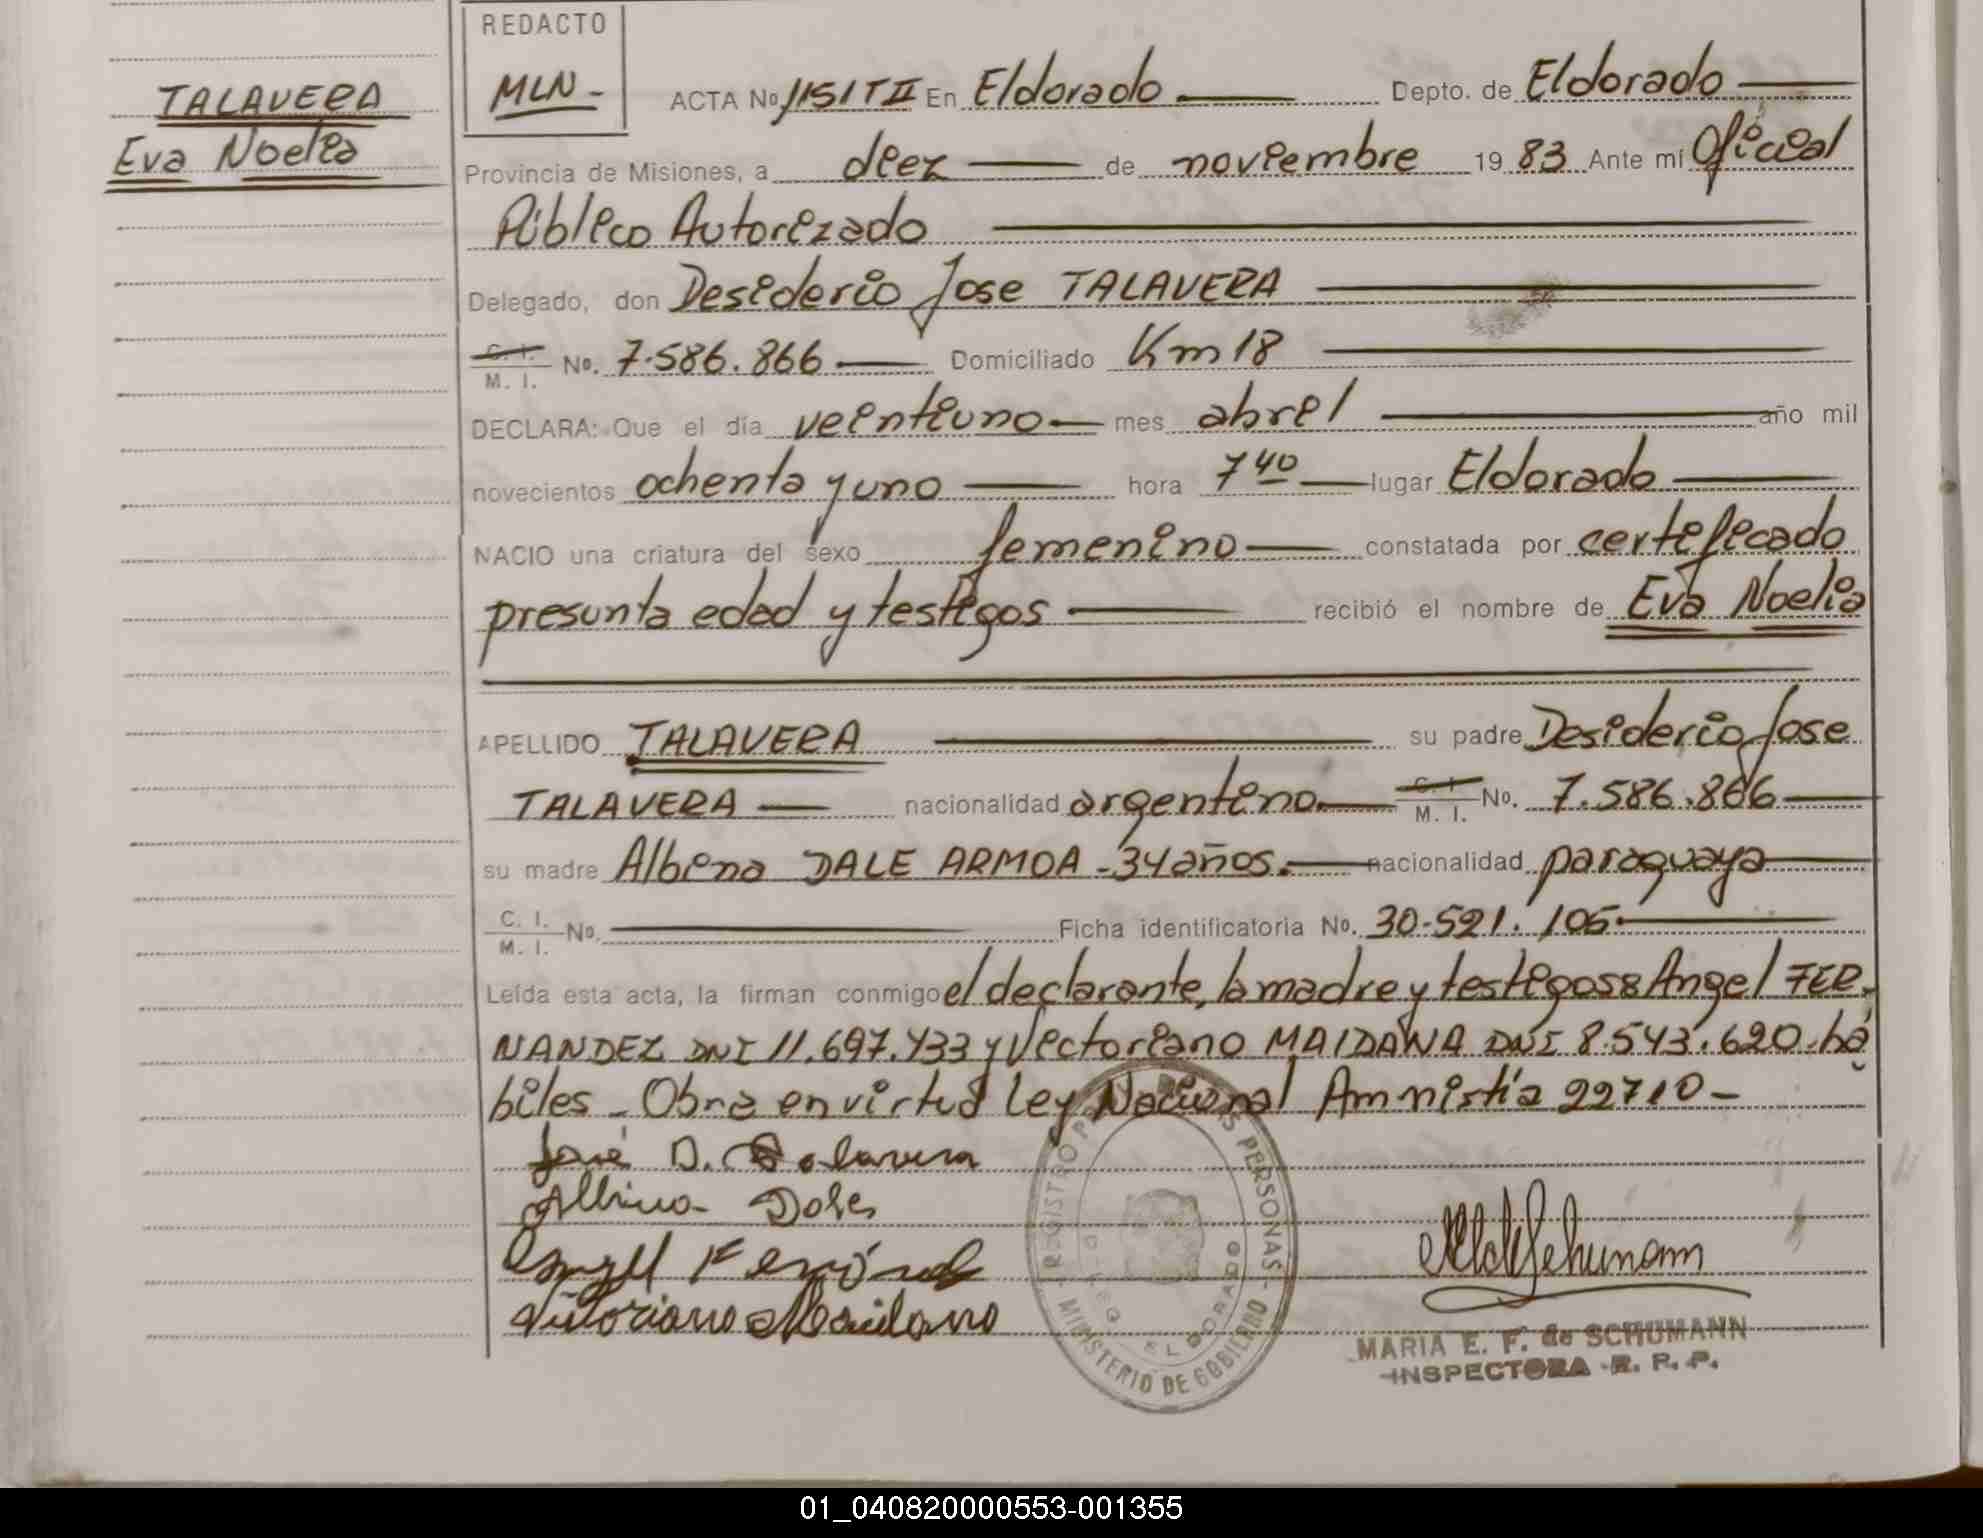 REDACTO
MLN-
TALAVERA
Eva Noelia
ACTA No 1151 T II En Eldorado Depto. de Eldorado
Provincia de Misiones, a diez de noviembre 1983 Ante mí Oficial
Público Autorizado
Delegado, don Desiderio Jose TALAVERA
C. I. / M. I. No. 7.586.866 Domiciliado Km 18
DECLARA: Que el día veintiuno mes abril año mil
novecientos ochenta y uno hora 7 40 lugar Eldorado
NACIO una criatura del sexo femenino constatada por certificado
presunta edad y testigos recibió el nombre de Eva Noelia
APELLIDO TALAVERA su padre Desiderio Jose
TALAVERA nacionalidad argentino C. I. / M. I. No. 7.586.866
su madre Albina DALE ARMOA - 34 años. nacionalidad paraguaya
C. I. / M. I. No. Ficha identificatoria No. 30.521.105
Leída esta acta, la firman conmigo el declarante, la madre y testigos: Angel FER-
NANDEZ DNI 11.697.433 y Victoriano MAIDANA DNI 8.543.620. há
biles - Obra en virtud Ley Nacional Amnistía 22710 -
José D. Talavera
Albina Dale
Angel Fernández
Victoriano Maidana
REGISTRO PERSONAS - MINISTERIO DE GOBIERNO -
ELDORADO
MARIA E. F. de SCHUMANN
INSPECTORA R. P. P.
01_040820000553-001355